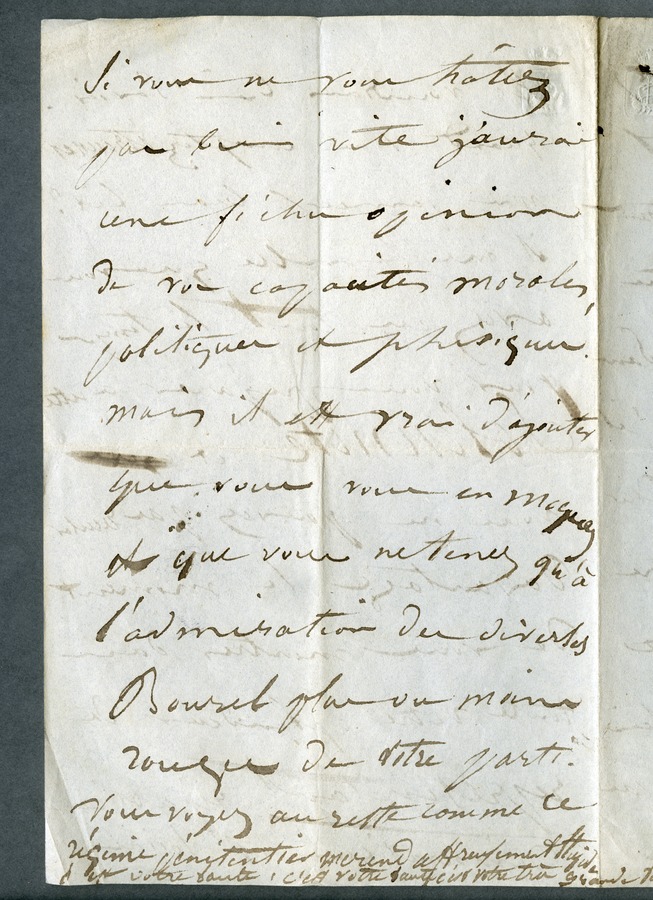 Si vous ne vous hâtiez
pas bien vite j'aurai
une fichue opinion
de vos capacités morales,
politiques et phisiques.
mais il est vrai d'ajouter
que vous vous en moquez
et que vous ne tenez qu'à
l'admiration des diverses
plus ou moins
rouges de votre parti.
vous voyez au reste comme ce
régime pénitentier me rend affreusement
et votre santé, c'est votre